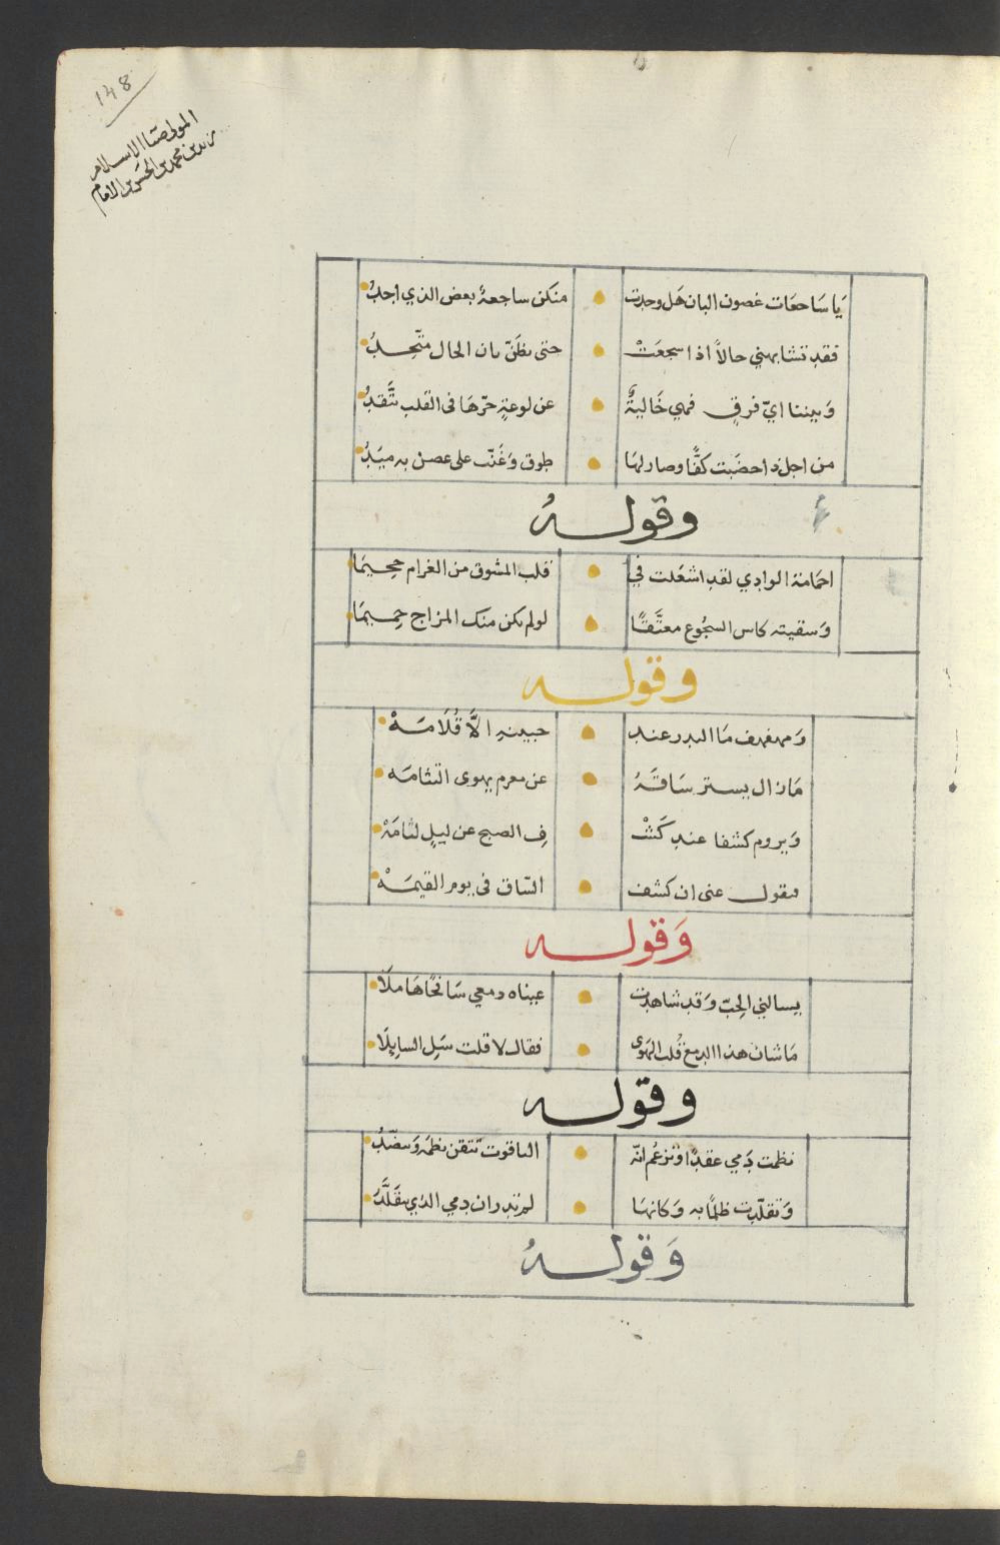 148
المولى ضيا الاسلام
زيد بن محمد بن الحسن بن الامام
يَا سَاجعَات غصون البان هَل وجدت منكن ساجعةٌ بعض الذي اجدُ
فقد تشابهني حالاً اذا سجعَتْ حتى يظنّ بان الحال متّحدُ
وَبيننا ايّ فرقٍ فهي خَاليةٌ عن لوعةٍ حرّهَا فى القلب تتَّقدُ
من اجل ذا خضبت كفًّا وصار لهَا طوق وَغنّت على غصن به ميَدُ
وقولهُ
احمَامة الوادي لقد اشعَلت في قلب المشوق من الغرام جحيمَا
وَسقيته كاس السجُوع معتَّقًا لو لم يكن منك المزاج حميمَا
وقوله
وَمهفهف مَا البدر عند جبينهِ الاَّ قُلَامَهْ
مَازال يستر سَاقَهُ عن مغرم يهوى التثامَه
وَيروم كشفا عند كَشْ فِ الصبح عن ليلٍ لثامَهْ
فيقول عنى ان كشف السّاق فى يوم القيمَهْ
وَقوله
يسالني الحِبّ وَقد شاهدت عيناه دمعي سَائحًا هَاملَا
مَا شان هذا الدمع قُلت الهَوى فقال لا قلت سَلِ السايِلَا
وقوله
نظمت دَمي عقدًا وَتزعُم انّه الياقوت تتقن نظمَه وَتنضّدُ
وَتقلّدت ظلمًا به وَكانهَا لم تدر ان دمي الذي تتقَلَّدُ
وَقولهُ